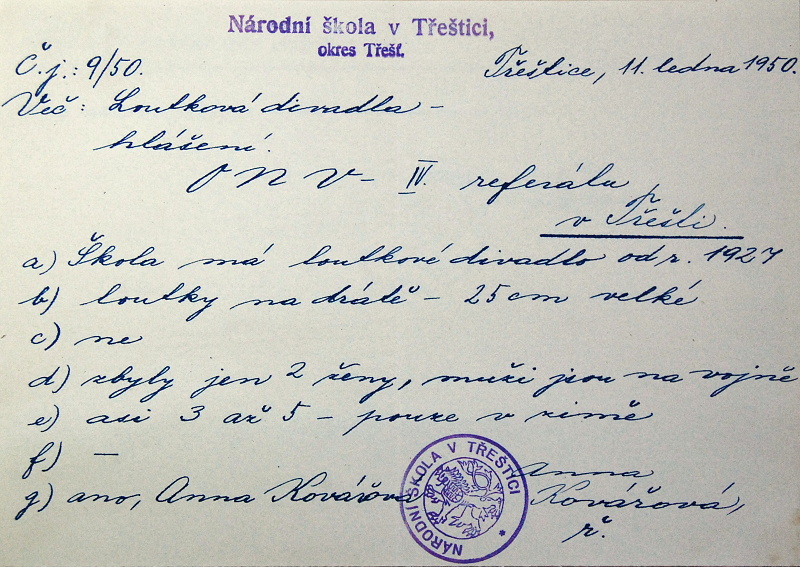 Národní škola v Třeštici,
okres Třešť.
Č.j.: 9/50.
Třeštice, 11. ledna 1950.
Věc: Loutková divadla -
hlášení.
ONV - IV. referátu
v Třešti.
a) Škola má loutkové divadlo od r. 1927
b) loutky na drátě - 25 cm velké
c) ne
d) zbyly jen 2 ženy, muži jsou na vojně
e) asi 3 až 5 - pouze v zimě
f) -
g) ano, Anna Kovářová
NÁRODNÍ ŠKOLA V TŘEŠTICI *
Anna
Kovářová,
ř.